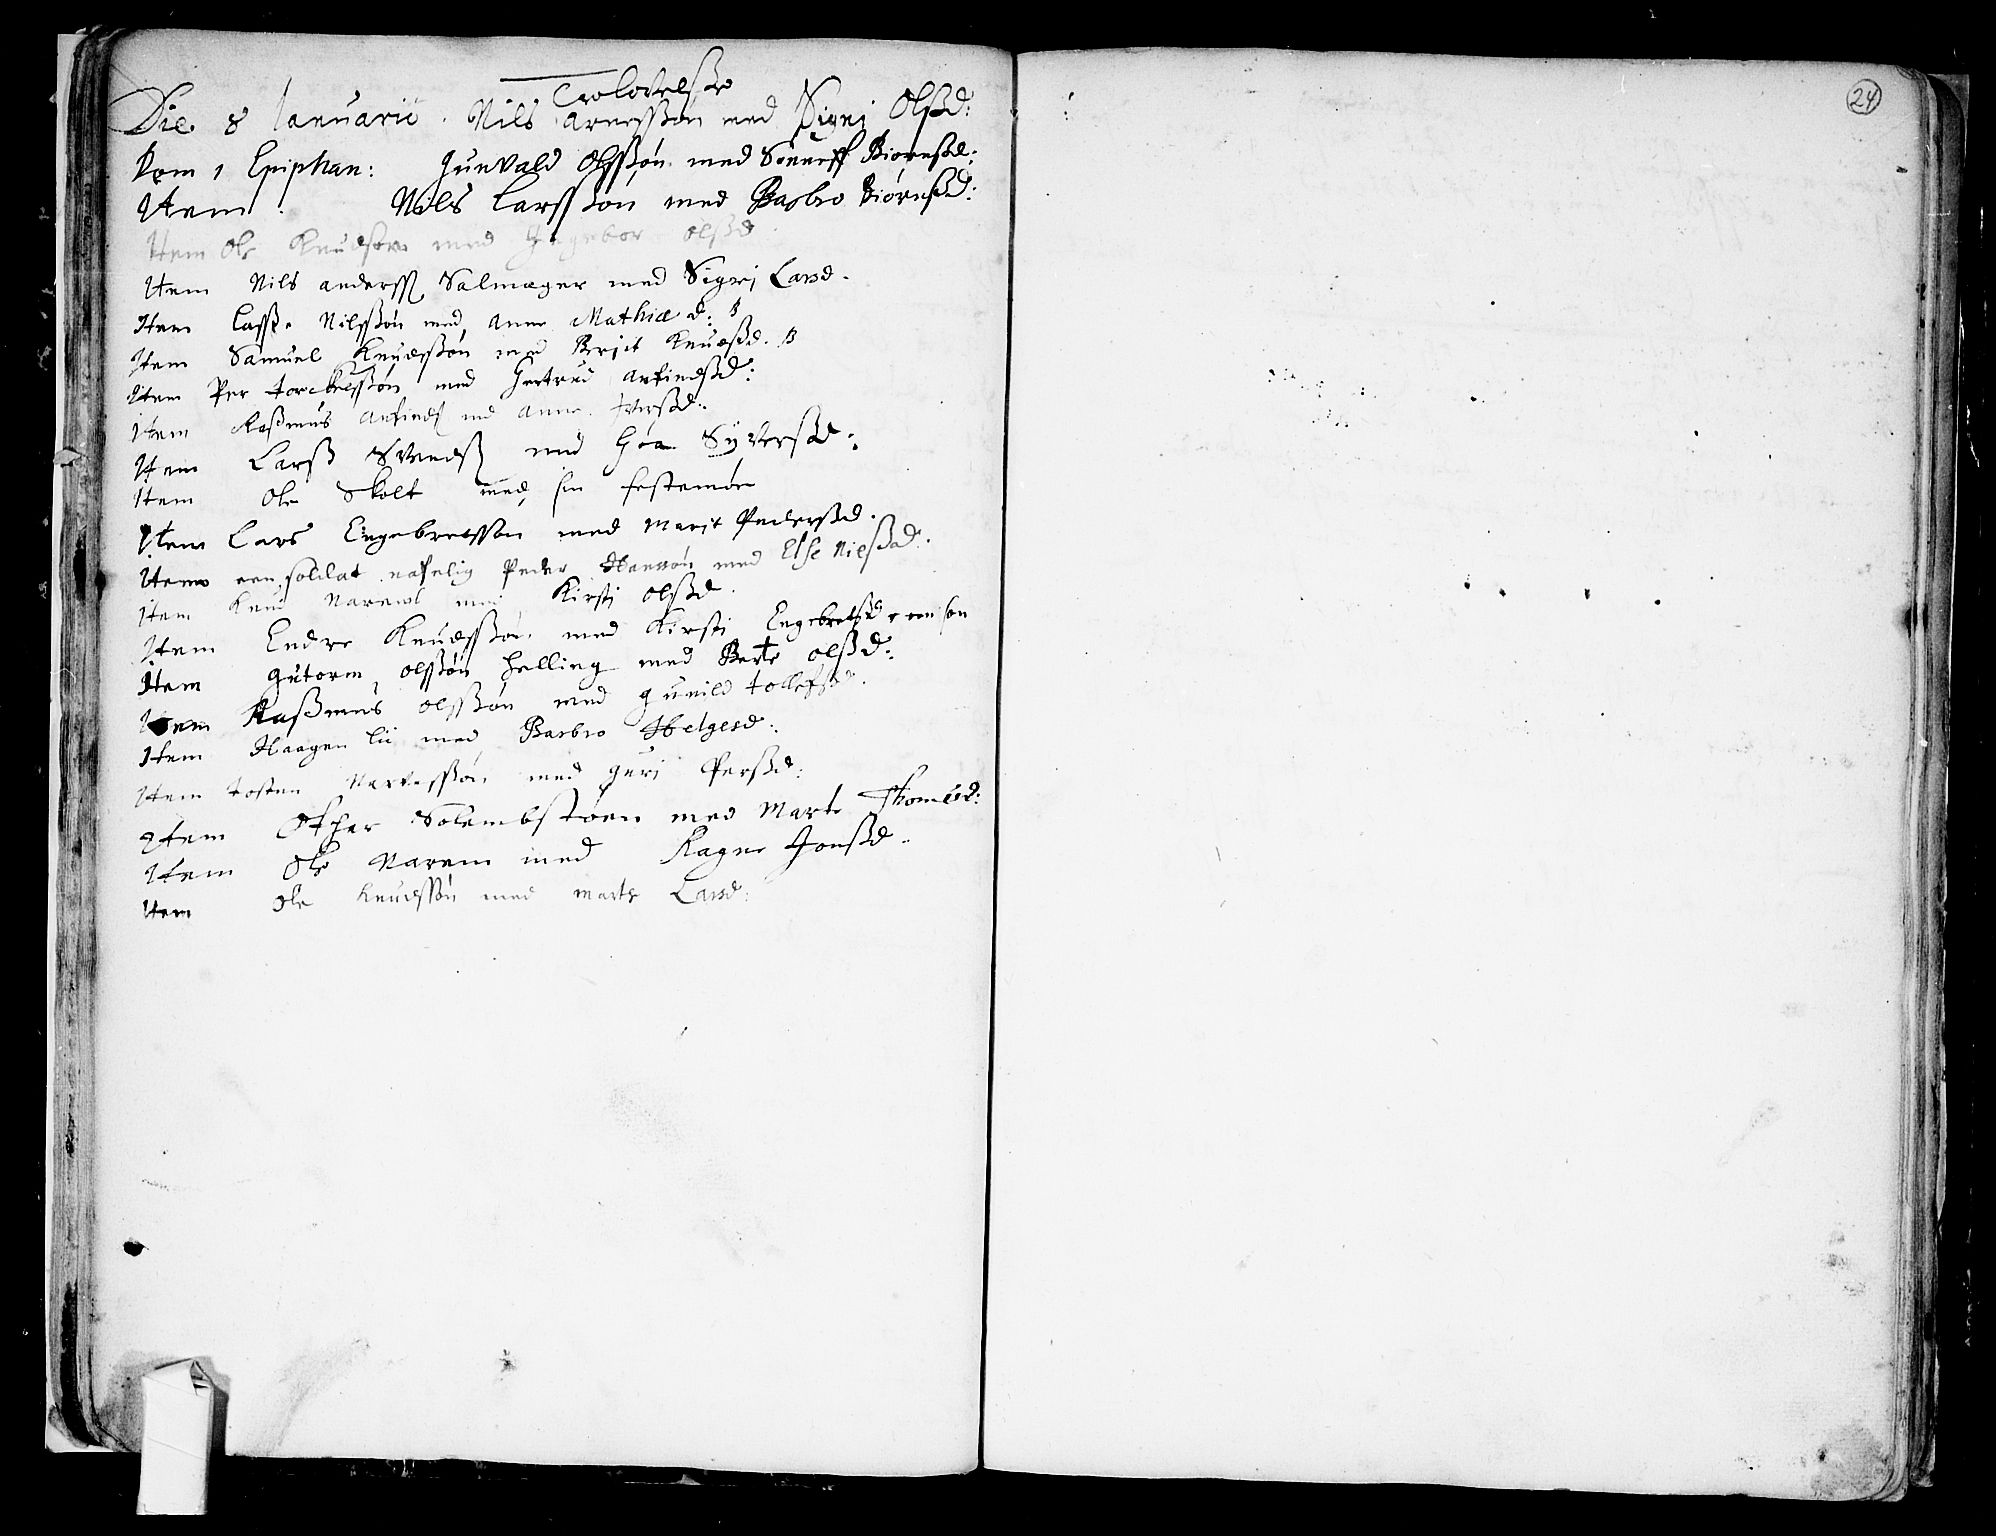 Trolovelsse
Die 8 Ianuarii. Nils Arnessøn med Signj Olssd:
Dom 1 Epiphan: Gunvald Olssøn med Sønneff Biørnssd:
Item. Nils Larssøn med Barbro Biørnssd:
Item Ole Knudsøn med Ingebor Olssd
Item Nils anderss Salmager med Sigrj Larsd.
Item Lasse Nilssøn med Anne Mathiæ d:
Item Samuel Knudssøn med Berjt Knudssd.
Item Per torckelssøn med Gertrud Anfindssd:
Item Rassmus Anfinds med Anne Iverssd:
Item Larss Svendss med Goa Syverssd:
Item Ole Skolt med sin festemøe
Item Lars Engebretssøn med Marjt Pederssd.
Item een soldat nafnlig Peder Hanssøn med Else Nilssd.
Item Knud Narem med Kirstj Olssd.
Item Endre Knudssøn med Kirsti Engebretssd een søn
Item Gutorm Olssøn Helling med Berte Olssd:
Item Rassmus Olssøn med Gunild tollefsd.
Item Haagen Lii med Barbro Helgesd:
Item tosten Narvessøn med Gurj Perssd:
Item Other Solembstøen med Marte Thomesd:
Item Ole Narem med Ragne Jonssd.
Item Ole Knudssøn med Marte Larsd:
24